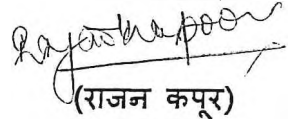 Rajan Kapoor
(राजन कपूर)